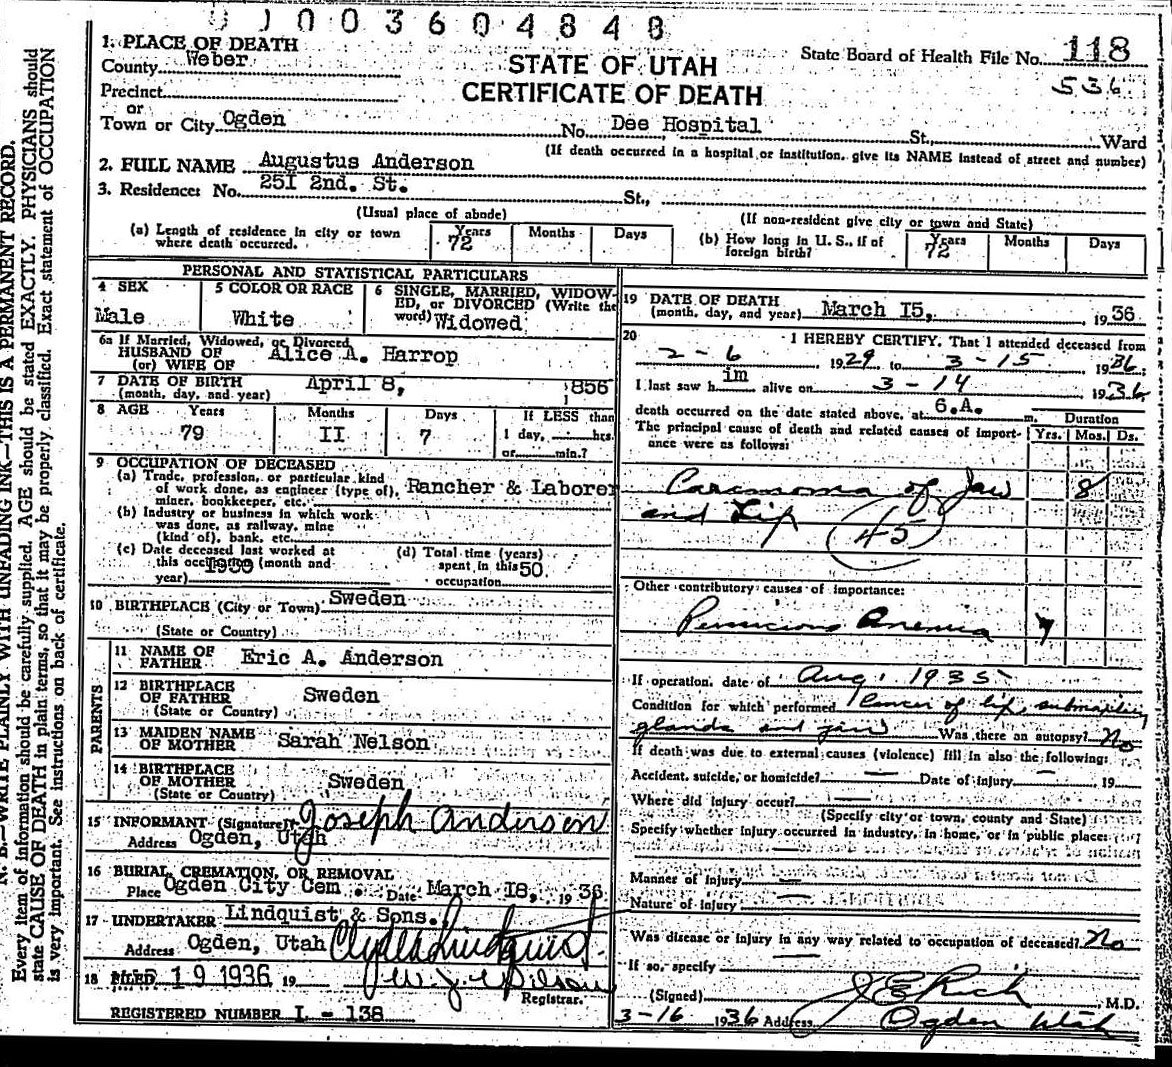 0 1 0 0 3 6 0 4 8 4 8
1. PLACE OF DEATH
County Weber
STATE OF UTAH
CERTIFICATE OF DEATH
State Board of Health File No. 118
536
Precinct
or
Town or City Ogden No. Dee Hospital St., Ward
(If death occurred in a hospital or institution, give its NAME instead of street and number)
2. FULL NAME Augustus Anderson
3. Residence: No. 25I 2nd. St. St.,
(Usual place of abode) (If non-resident give city or town and State)
(a) Length of residence in city or town where death occurred. Years 72 Months Days
(b) How long in U. S., if of foreign birth? Years 72 Months Days
PERSONAL AND STATISTICAL PARTICULARS
4 SEX Male
5 COLOR OR RACE White
6 SINGLE, MARRIED, WIDOWED, or DIVORCED (Write the word) Widowed
6a If Married, Widowed, or Divorced
HUSBAND OF Alice A. Harrop
(or) WIFE OF
7 DATE OF BIRTH April 8, 1856
(month, day, and year)
8 AGE Years 79 Months II Days 7 If LESS than 1 day, hrs. or min.?
9 OCCUPATION OF DECEASED
(a) Trade, profession, or particular kind of work done, as engineer (type of), miner, bookkeeper, etc. Rancher & Laborer
(b) Industry or business in which work was done, as railway, mine (kind of), bank, etc.
(c) Date deceased last worked at this occupation (month and year)
(d) Total time (years) spent in this occupation 50
10 BIRTHPLACE (City or Town) Sweden
(State or Country)
PARENTS
11 NAME OF FATHER Eric A. Anderson
12 BIRTHPLACE OF FATHER Sweden
(State or Country)
13 MAIDEN NAME OF MOTHER Sarah Nelson
14 BIRTHPLACE OF MOTHER Sweden
(State or Country)
15 INFORMANT (Signature) Joseph Anderson
Address Ogden, Utah
16 BURIAL, CREMATION, OR REMOVAL
Place Ogden City Cem. Date March I8, 1936
17 UNDERTAKER Lindquist & Sons.
Address Ogden, Utah Clyde Lindquist
18 FILED 19 1936 19 W. J. Wilson
Registrar.
REGISTERED NUMBER I - 138
19 DATE OF DEATH March I5, 1936
(month, day, and year)
20 I HEREBY CERTIFY, That I attended deceased from
2-6 1929 to 3-15 1936;
I last saw him alive on 3-14 1936
death occurred on the date stated above, at 6.A. m. Duration
The principal cause of death and related causes of importance were as follows: Yrs. Mos. Ds.
Carcinoma of Jaw 8
and Lip (45)
Other contributory causes of importance:
Pernicious Anemia 7
If operation, date of Aug. 1935
Condition for which performed Cancer of lip, submaxillary
glands and jaw Was there an autopsy? No
If death was due to external causes (violence) fill in also the following:
Accident, suicide, or homicide? — Date of injury — 19
Where did injury occur? —
(Specify city or town, county and State)
Specify whether injury occurred in industry, in home, or in public place:
Manner of Injury —
Nature of Injury —
Was disease or injury in any way related to occupation of deceased? No
If so, specify —
(Signed) J E Rich M.D.
3-16 1936 Address Ogden Utah
N. B.—WRITE PLAINLY WITH UNFADING INK—THIS IS A PERMANENT RECORD.
Every item of information should be carefully supplied. AGE should be stated EXACTLY. PHYSICIANS should
state CAUSE OF DEATH in plain terms, so that it may be properly classified. Exact statement of OCCUPATION
is very important. See instructions on back of certificate.